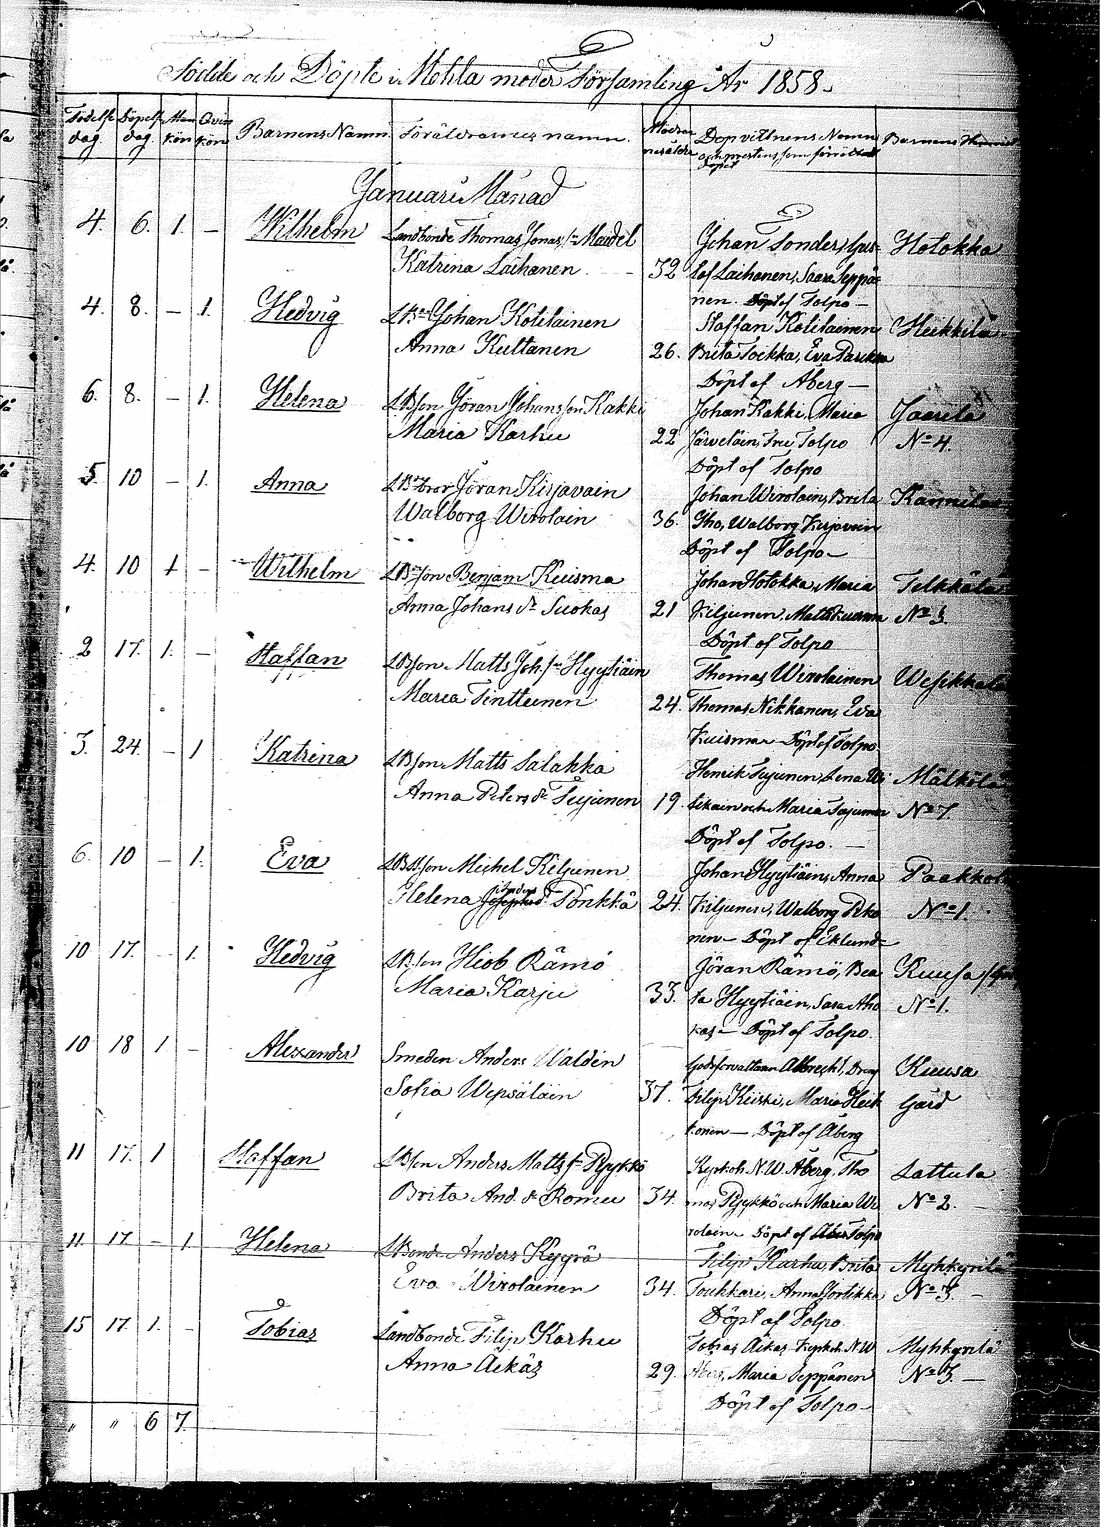 Födde och Döpte i Mohla moder Församling År 1858.
Födelse dag. Döpelse dag. Man kön Qvin kön Barnens Namn Föräldrarnes namn. Modrens ålder Dopvittnens Namn och prestens, som förrättat dopet Barnens
Januari Månad
4. 6. 1. – Wilhelm Landbonde Thomas Jonas sn Mandel Johan Sonder, Gus- Hotokka
Katrina Laihanen 32 taf Laihanen, Saara Seppä-
nen. Döpt af Tolpo –
4. 8. – 1. Hedvig Johan Kotilainen Staffan Kotilainen Heikkilä
Anna Kultanen 26. Brita Toikka, Eva
Döpt af Åberg –
6. 8. – 1. Helena LBson Jöran Johansson Kakki Johan Kakki, Maria Jaarila
Maria Karhu 22 Järveläin, Tolpo No 4.
Döpt af Tolpo
5. 10 – 1. Anna Jöran Kirjavain Johan Wirolain, Brita Kannila
Walborg Wirolain 36. Iho, Walborg Kirjavain
Döpt af Tolpo –
4. 10 1 – Wilhelm LBson Benjam Kuisma Johan Hotokka, Maria Telkkälä
Anna Johans dr Suokas 21 Kiljunen, Matts Kuisma No 3.
Döpt af Tolpo
2 17. 1. – Staffan LBson Matts Joh. sn Hyytiäin Thomas Wirolainen Wesikkala
Maria Tinttunen 24. Thomas Nikkanen, Eva
Kuisma – Döpt af Tolpo
3. 24. – 1 Katrina LBson Matts Salakka Henrik Tujunen, Lena Mälkölä
Anna Peters dr Tujunen 19. och Maria Tujunen No 7.
Döpt af Tolpo. –
6. 10 – 1. Eva Michel Kiljunen Johan Hyytiäin, Anna Paakkola
Helena Anders dr Pönkkä 24. Kiljunen, Walborg Peko No 1.
nen – Döpt af Eklund
10 17. 1. Hedvig LBson Hiob Rämö Jöran Rämö, Bea Kuusa
Maria Karju 33. ta Hyytiäin, Sara Aho No 1.
kas – Döpt af Tolpo.
10 18 1 – Alexander Smeden Anders Waldén Godsförvaltaren Albrecht, Kuusa
Sofia Wepsäläin 37. Filip Kiiski, Maria Heik Gård
konen – Döpt af Åberg
11 17. 1 Staffan LBson Anders Matts sn Pyykkö Kyrkoh. N. W. Åberg, Tho Lattula
Brita And. dr Romu 34. mas Pyykkö och Maria Wi No 2. –
rolain – Döpt af Tolpo
11 17. – 1 Helena LBonde Anders Kyyrö Filip Karhu, Brita Myhkyrilä
Eva Wirolainen 34. Toukkari, Anna No 3. –
Döpt af Tolpo
15 17. 1. – Tobias Landbonde Filip Karhu Tobias Äikäs, Kyrkoh. N. W. Myhkyrilä
Anna Äikäs 29. Åberg, Maria Seppänen No 3. –
Döpt af Tolpo –
" " 6 7.